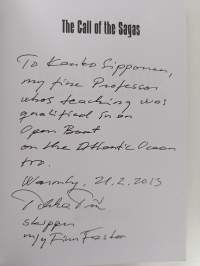 The Call of the Sagas
To Kauko Sipponen,
my fine Professor
whos teaching was
qualified in an
Open Boat
on the Atlantic Ocean
too.
21.2.2013
skipper
m/y Finn